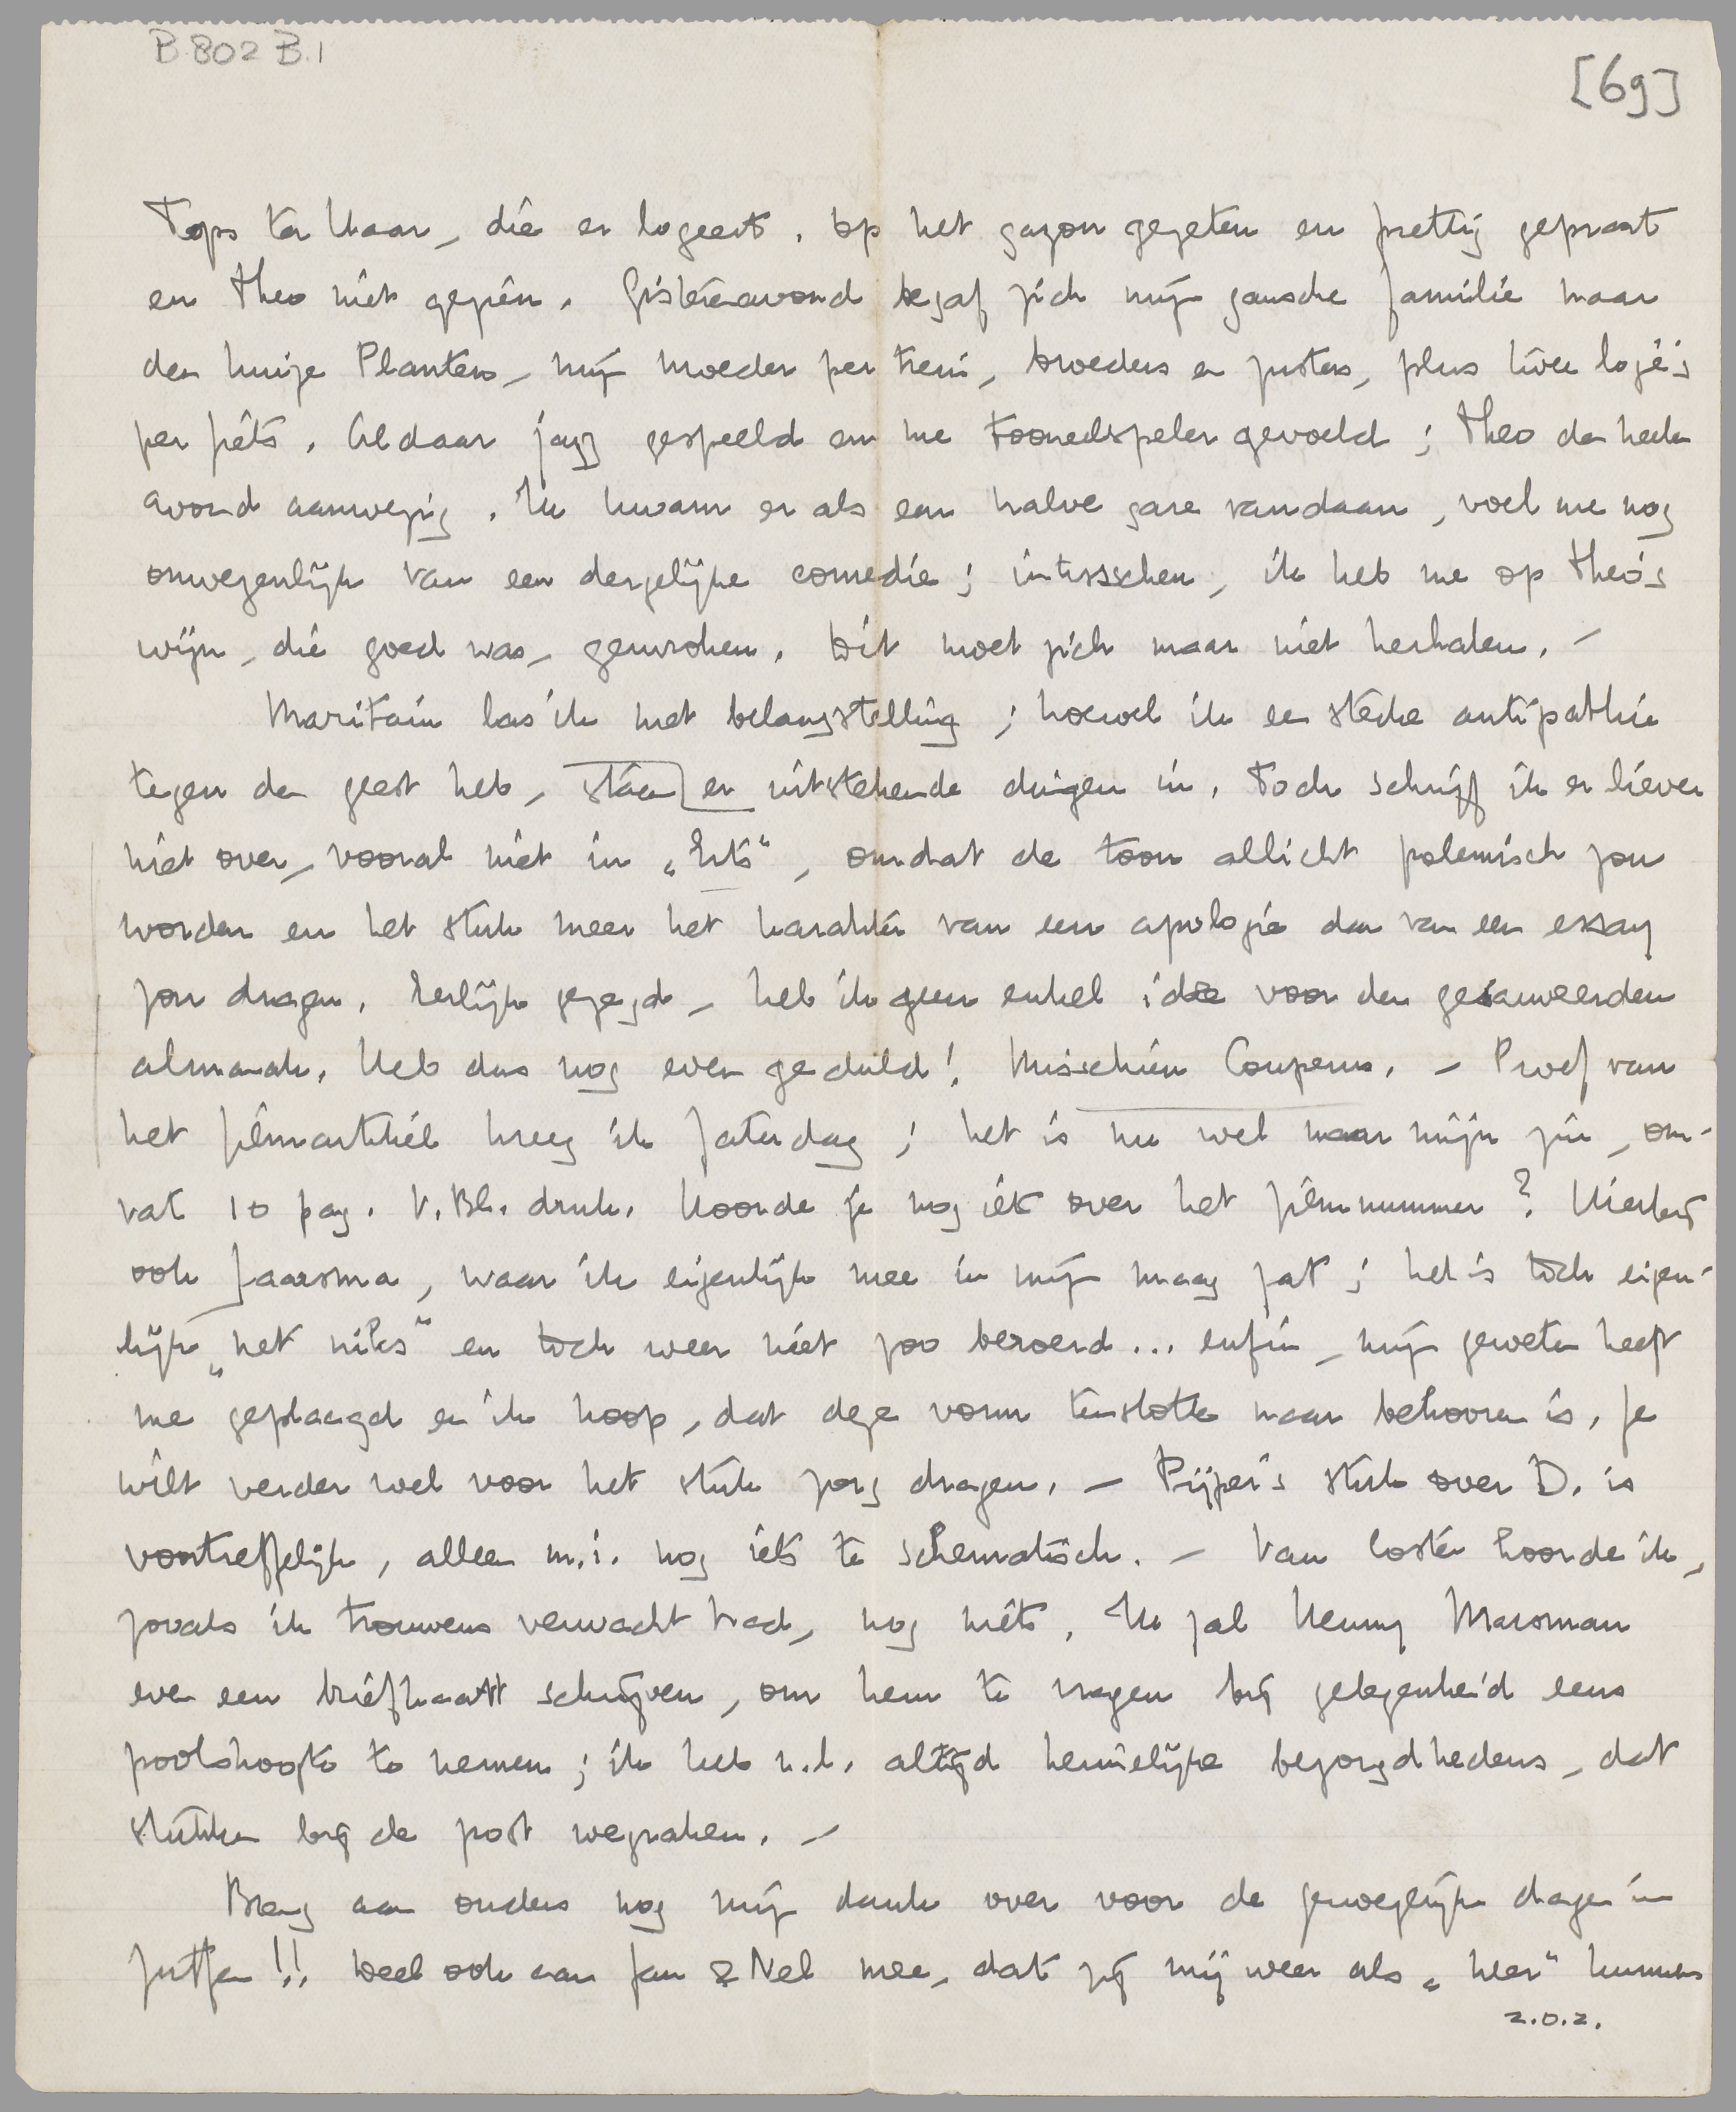 B 802 B.1
[69]
Tops ter Haar, die er logeert. Op het gazon gegeten en prettig gepraat
en Theo niet gezien. Gisterenavond begaf zich mijn gansche familie naar
den huize Planten, mijn moeder per trein, broeders en zusters, plus twee logé's
per fiets. Aldaar jazz gespeeld en me tooneelspeler gevoeld; Theo den heelen
avond aanwezig. Ik kwam er als een halve gare vandaan, voel me nog
onwezenlijk van een dergelijke comedie; intusschen, ik heb me op Theo's
wijn, die goed was, gewroken. Dit moet zich maar niet herhalen. –
Maritain las ik met belangstelling; hoewel ik een sterke antipathie
tegen den geest heb, staan er uitstekende dingen in. Toch schrijf ik er liever
niet over, vooral niet in „Erts“, omdat de toon allicht polemisch zou
worden en het stuk meer het karakter van een apologie dan van een essay
zou dragen. Eerlijk gezegd, heb ik geen enkel idee voor den
almanak. Heb dus nog even geduld! Misschien Couperus. – Proef van
het filmartikel kreeg ik Zaterdag; het is nu wel naar mijn zin, om-
vat 10 pag. V. Bl. druk. Hoorde je nog iets over het filmnummer? Hierbij
ook Jaarsma, waar ik eigenlijk mee in mijn maag zat; het is toch eigen-
lijk „net niks“ en toch weer niet zoo beroerd... enfin, mijn geweten heeft
me geplaagd en ik hoop, dat deze vorm tenslotte naar behooren is. Je
wilt verder wel voor het stuk zorg dragen. – Pijper's stuk over D. is
voortreffelijk, alleen m.i. nog iets te schematisch. – Van Coster hoorde ik,
zooals ik trouwens verwacht had, nog niets. Ik zal Henny Marsman
even een briefkaart schrijven, om hem te vragen bij gelegenheid eens
poolshoogte te nemen; ik heb n.l. altijd heimelijke bezorgdhedens, dat
stukken bij de post wegraken. –
Breng aan ouders nog mijn dank over voor de genoegelijke dagen in
Zutfen!! Deel ook aan Jan & Nel mee, dat zij mij weer als „heer“ kunnen
z.o.z.